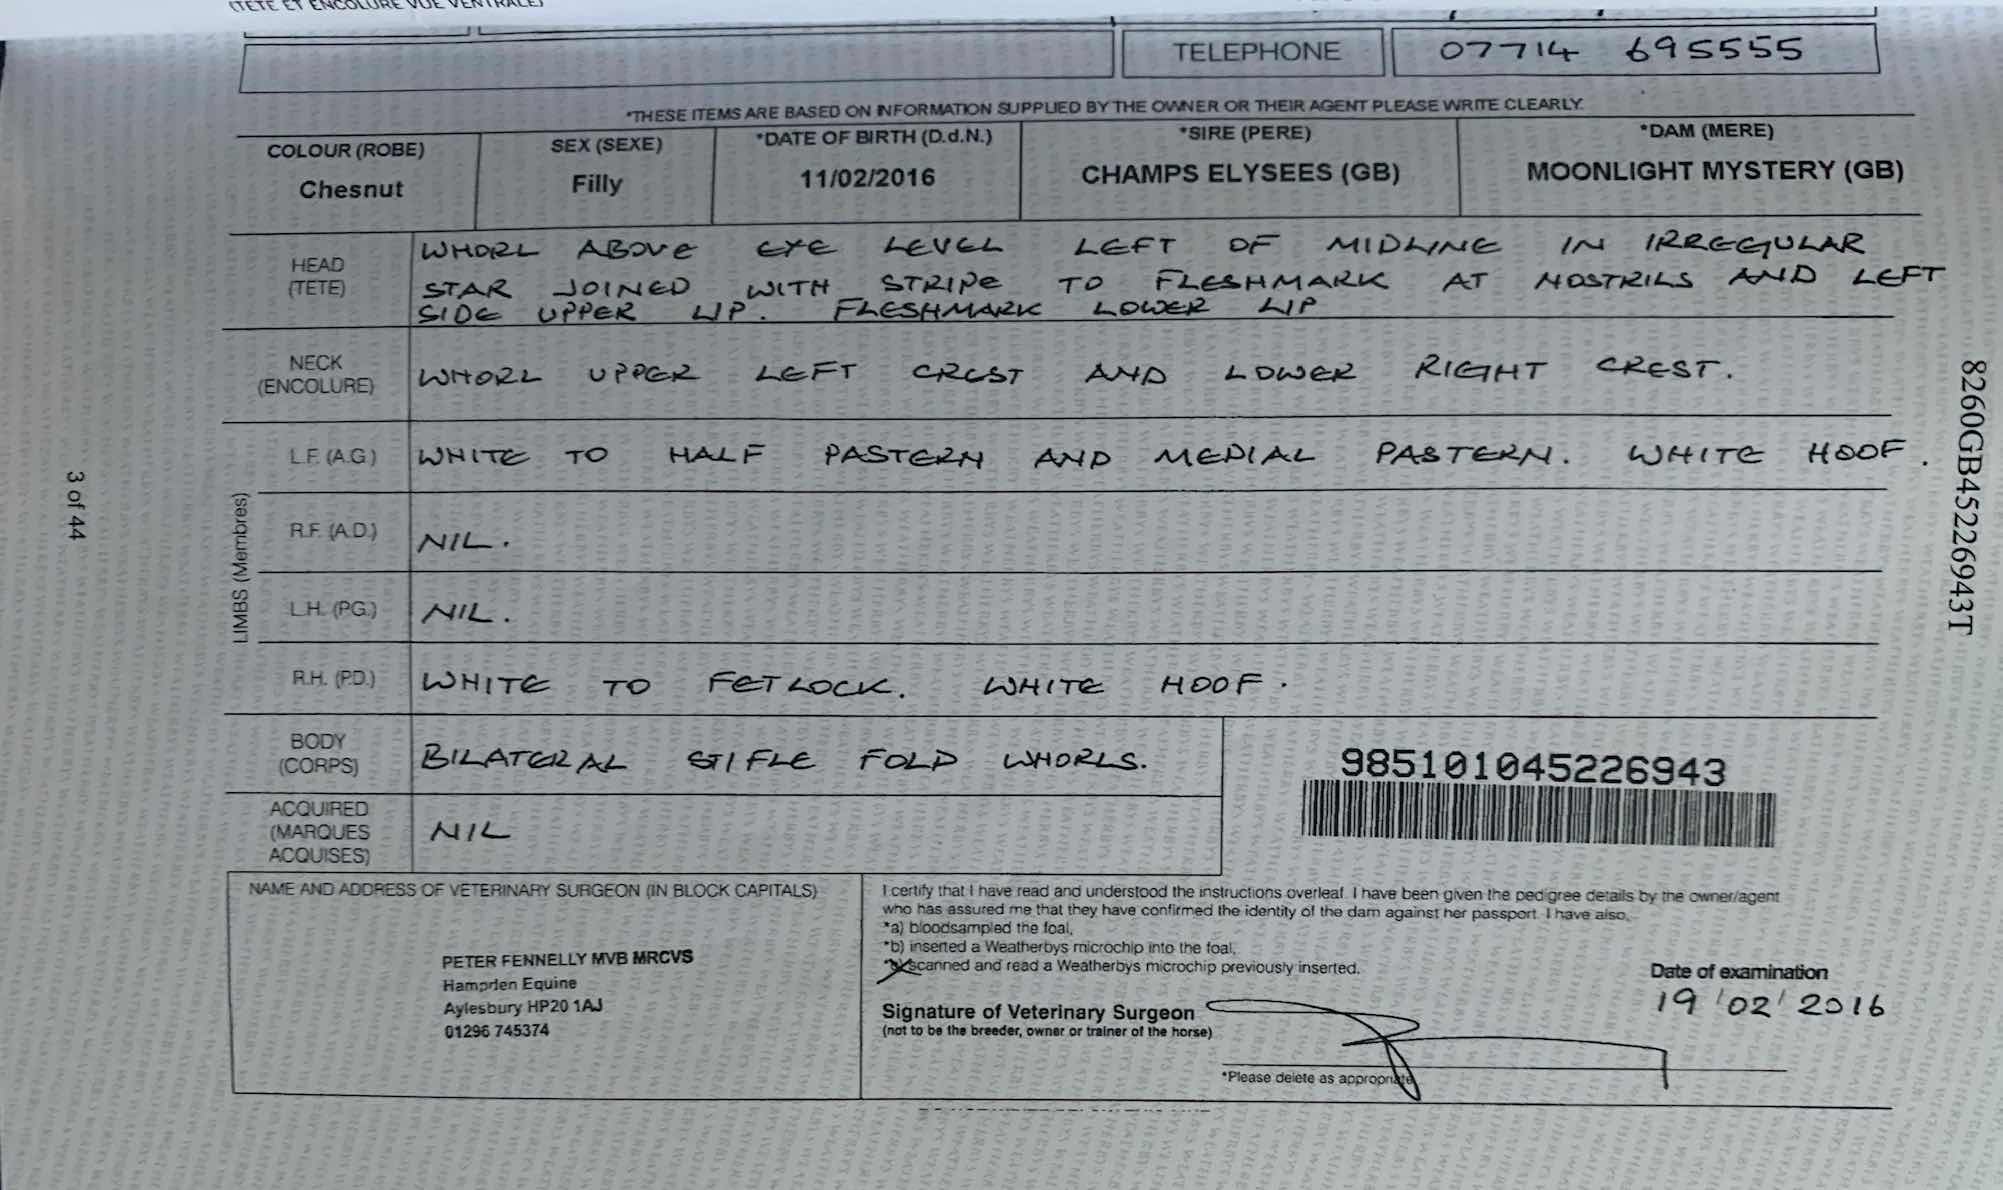 (TETE ET ENCOLURE VUE VENTRALE)
TELEPHONE 07714 695555
*THESE ITEMS ARE BASED ON INFORMATION SUPPLIED BY THE OWNER OR THEIR AGENT PLEASE WRITE CLEARLY.
COLOUR (ROBE) SEX (SEXE) *DATE OF BIRTH (D.d.N.) *SIRE (PERE) *DAM (MERE)
Chesnut Filly 11/02/2016 CHAMPS ELYSEES (GB) MOONLIGHT MYSTERY (GB)
HEAD
(TETE)
WHORL ABOVE EYE LEVEL LEFT OF MIDLINE IN IRREGULAR
STAR JOINED WITH STRIPE TO FLESHMARK AT NOSTRILS AND LEFT
SIDE UPPER LIP. FLESHMARK LOWER LIP
NECK
(ENCOLURE)
WHORL UPPER LEFT CREST AND LOWER RIGHT CREST.
LIMBS (Membres)
L.F. (A.G.) WHITE TO HALF PASTERN AND MEDIAL PASTERN. WHITE HOOF.
R.F. (A.D.) NIL.
L.H. (P.G.) NIL.
R.H. (P.D.) WHITE TO FETLOCK. WHITE HOOF.
BODY
(CORPS)
BILATERAL STIFLE FOLD WHORLS.
985101045226943
ACQUIRED
(MARQUES
ACQUISES)
NIL
NAME AND ADDRESS OF VETERINARY SURGEON (IN BLOCK CAPITALS)
PETER FENNELLY MVB MRCVS
Hampden Equine
Aylesbury HP20 1AJ
01296 745374
I certify that I have read and understood the instructions overleaf. I have been given the pedigree details by the owner/agent
who has assured me that they have confirmed the identity of the dam against her passport. I have also,
*a) bloodsampled the foal,
*b) inserted a Weatherbys microchip into the foal,
scanned and read a Weatherbys microchip previously inserted.
Signature of Veterinary Surgeon
(not to be the breeder, owner or trainer of the horse)
*Please delete as appropriate
Date of examination
19/02/2016
3 of 44
8260GB45226943T